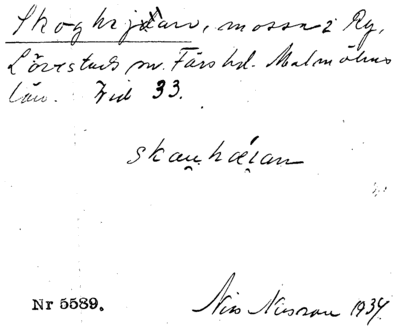 Skoghejdan, mossa i Ry,
Lövestads sn. Färs hd. Malmöhus
län. Fid 33.
skau̯hæi̯an
Nr 5589.
Nils Nilsson 1934.